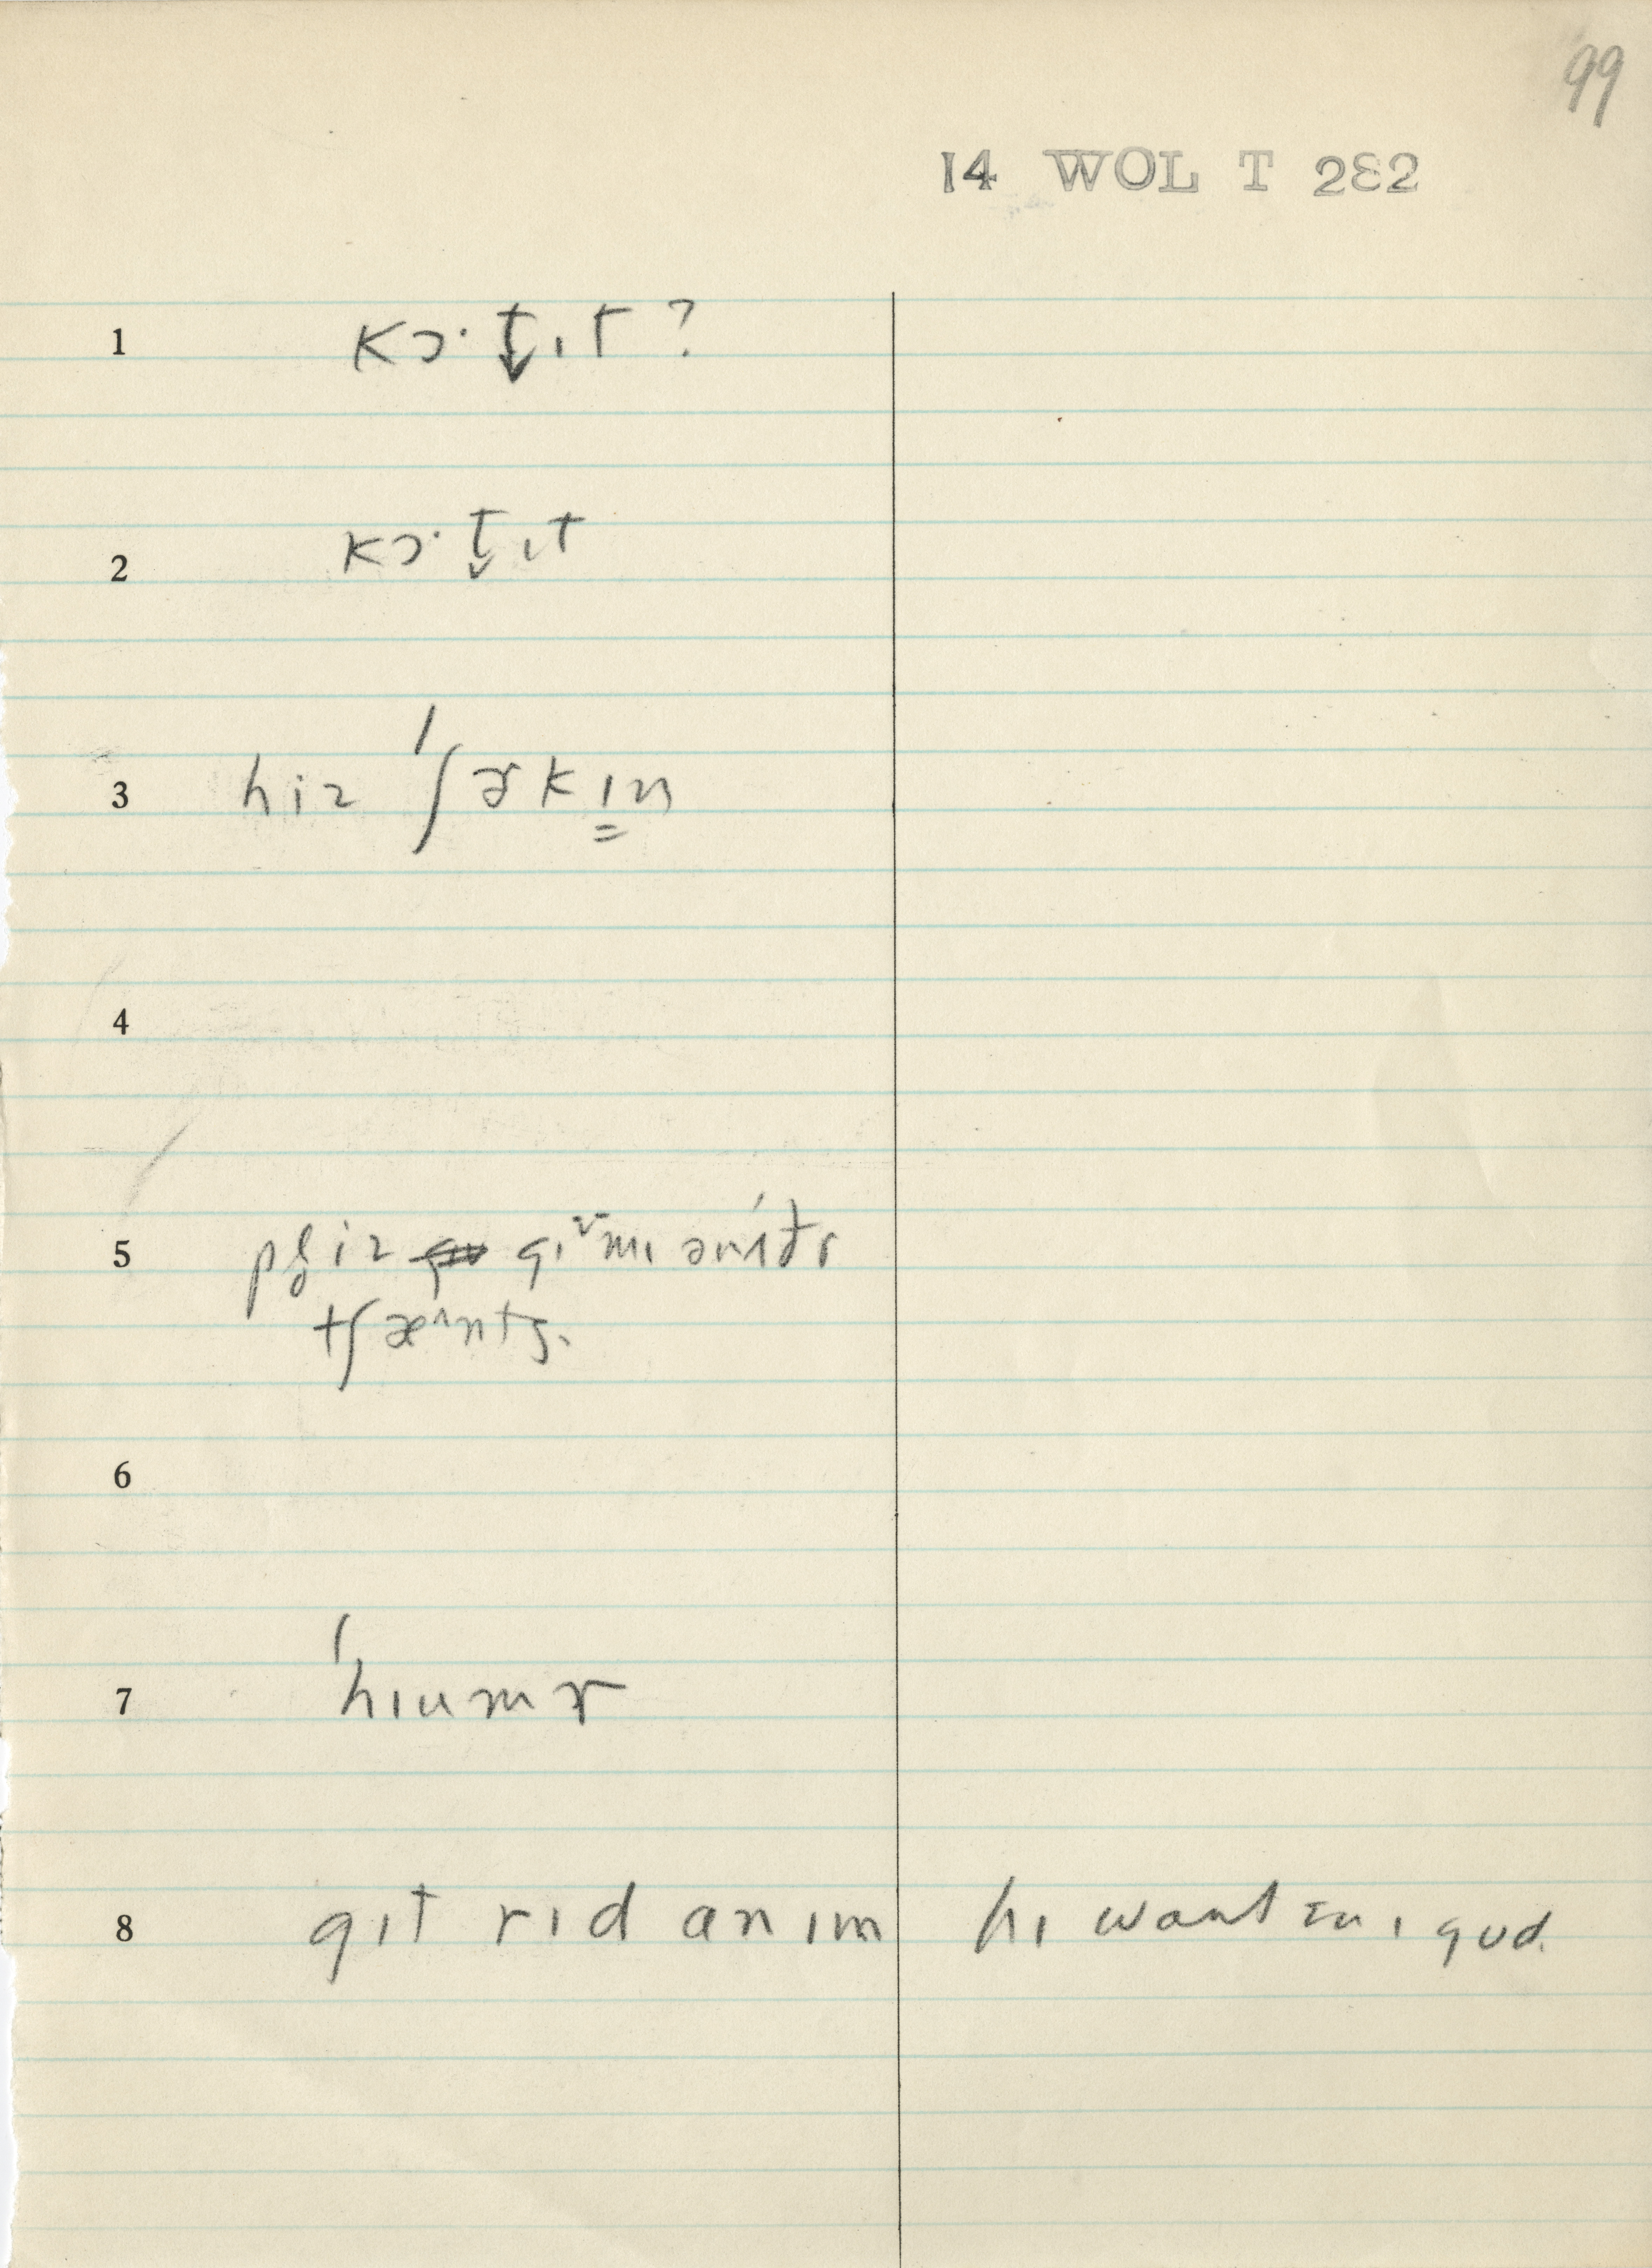 99
14 WOL T 282
1 kɔ· t̬ ɪt ?
2 kɔ· t̬ ɪt
3 hiz ˈʃɚkɪn
4
5 pl̥iz gɪᵛmɪ ənʌ́ðɚ
tʃæ^nts.
6
7 ˈhɪumɚ
8 gɪt rɪd an ɪm hɪ want ɪn ɪ gʊd.